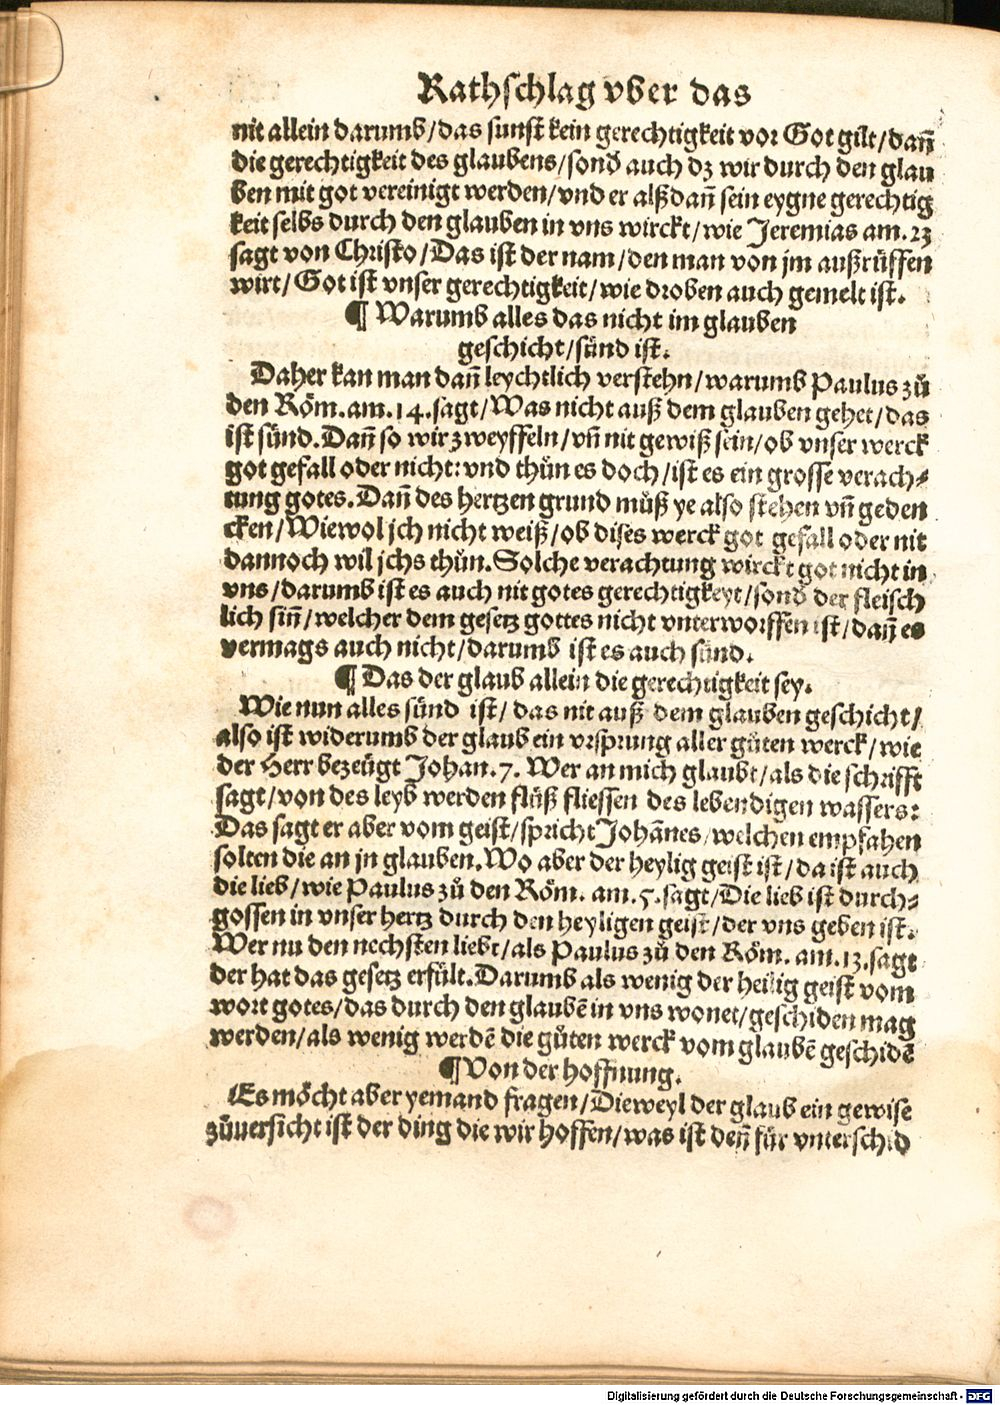 Rathschlag vber das
nit allein darumb/das sunst kein gerechtigkeit vor Got gilt/dañ
die gerechtigkeit des glaubens/sond̕ auch dz wir durch den glau
ben mit got vereinigt werden/vnd er alßdañ sein eygne gerechtig
keit selbs durch den glauben in vns wirckt/wie Jeremias am.23
sagt von Christo/Das ist der nam/den man von jm außrüffen
wirt/Got ist vnser gerechtigkeit/wie droben auch gemelt ist.
¶ Warumb alles das nicht im glauben
geschicht/sünd ist.
Daher kan man dañ leychtlich verstehn/warumb Paulus zů
den Röm.am.14.sagt/Was nicht auß dem glauben gehet/das
ist sünd.Dañ so wir zweyffeln/vñ nit gewiß sein/ob vnser werck
got gefall oder nicht:vnd thůn es doch/ist es ein grosse verach⸗
tung gotes.Dañ des hertzen grund můß ye also stehen vñ geden
cken/Wiewol jch nicht weiß/ob dises werck got gefall oder nit
dannoch wil jchs thůn.Solche verachtung wirckt got nicht in
vns/darumb ist es auch nit gotes gerechtigkeyt/sond̕ der fleisch
lich siñ/welcher dem gesetz gottes nicht vnterworffen ist/dañ es
vermags auch nicht/darumb ist es auch sünd.
¶ Das der glaub allein die gerechtigkeit sey.
Wie nun alles sünd ist/das nit auß dem glauben geschicht/
also ist widerumb der glaub ein vrsprung aller gůten werck/wie
der Herr bezeügt Johan.7. Wer an mich glaubt/als die schrifft
sagt/von des leyb werden flüß fliessen des lebendigen wassers:
Das sagt er aber vom geist/spricht Johãnes/welchen empfahen
solten die an jn glauben.Wo aber der heylig geist ist/da ist auch
die lieb/wie Paulus zů den Röm. am.5.sagt/Die lieb ist durch⸗
gossen in vnser hertz durch den heyligen geist/der vns geben ist.
Wer nu den nechsten liebt/als Paulus zů den Röm. am.13.sagt
der hat das gesetz erfült.Darumb als wenig der heilig geist vom
wort gotes/das durch den glaubẽ in vns wonet/geschiden mag
werden/als wenig werdẽ die gůten werck vom glaubẽ geschidẽ
¶ Von der hoffnung.
Es möcht aber yemand fragen/Dieweyl der glaub ein gewise
zůuersicht ist der ding die wir hoffen/was ist deñ für vnterschid
Digitalisierung gefördert durch die Deutsche Forschungsgemeinschaft - DFG